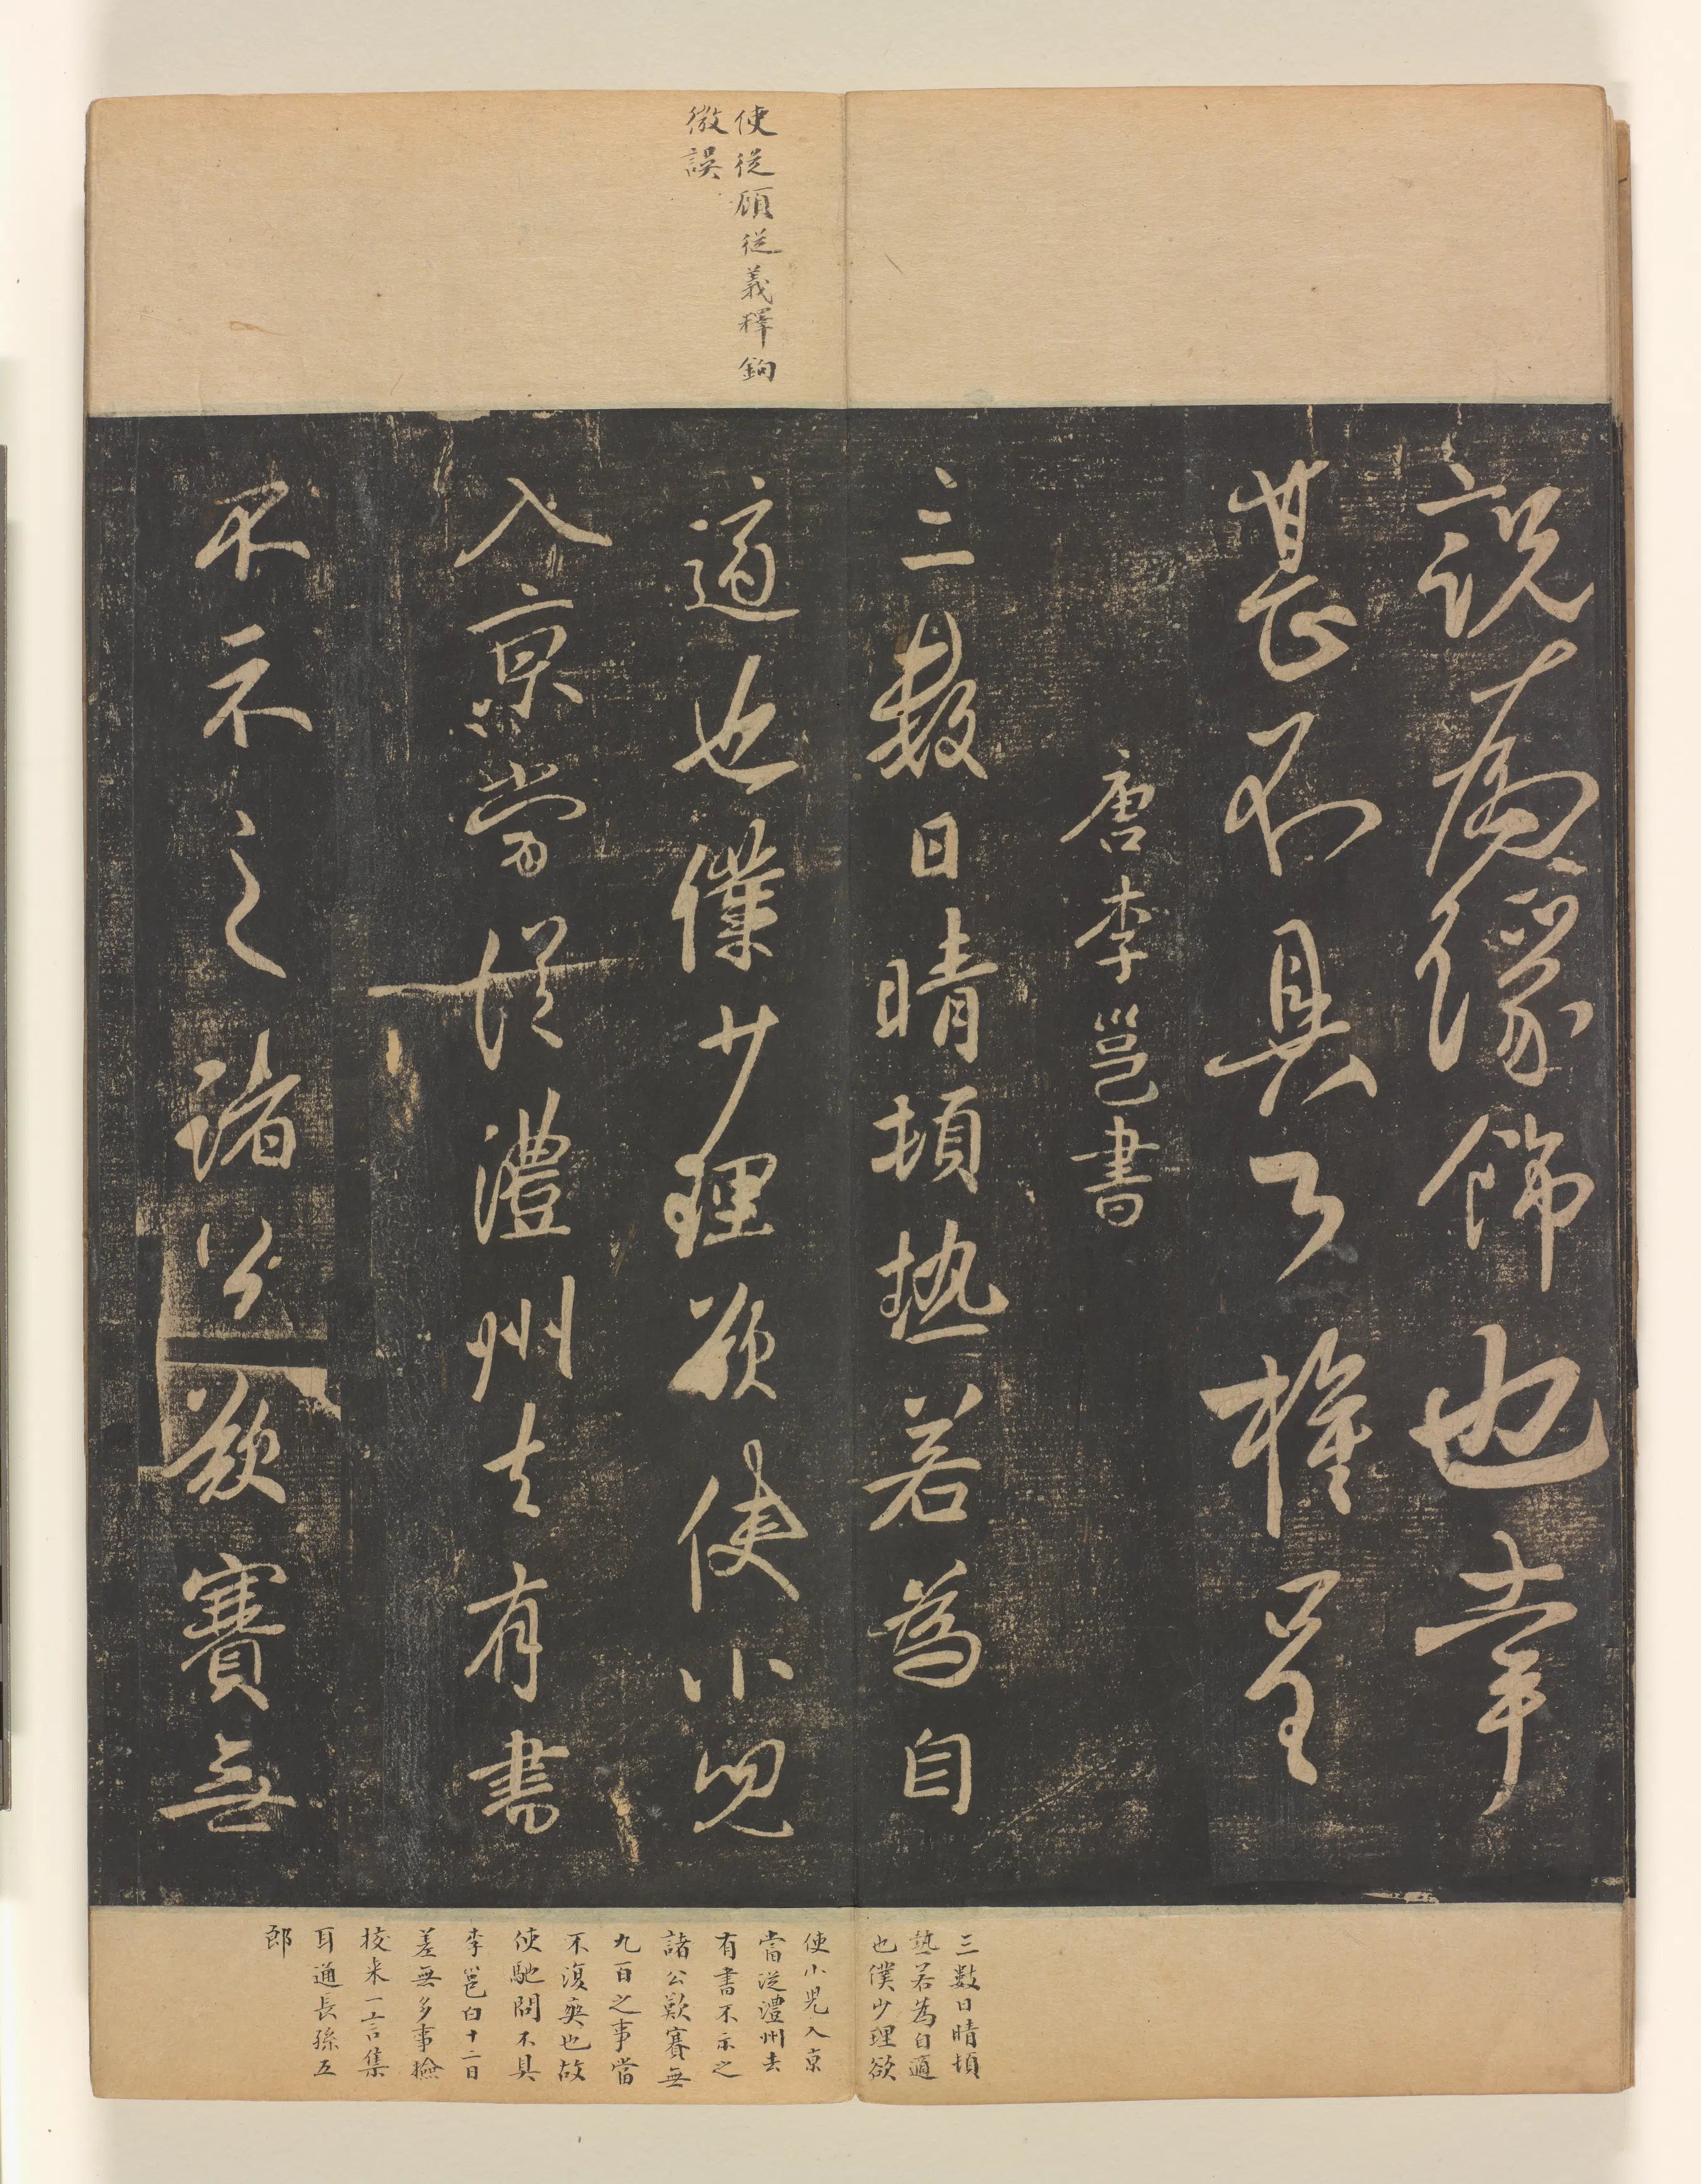 使從顧從義釋鉤
微誤
說為緣飾也幸
甚不具公權呈
唐李邕書
三數日晴頓熱若為自
適也僕少理欲使小兒
入京當從澧州去有書
不示之諸公歎賽無
三數日晴頓
熱若為自適
也僕少理欲
使小兒入京
當從澧州去
有書不示之
諸公歎賽無
九百之事當
不復爽也故
使馳問不具
李邕白十二日
差無多事撿
挍来一言集
耳通長孫五
郎